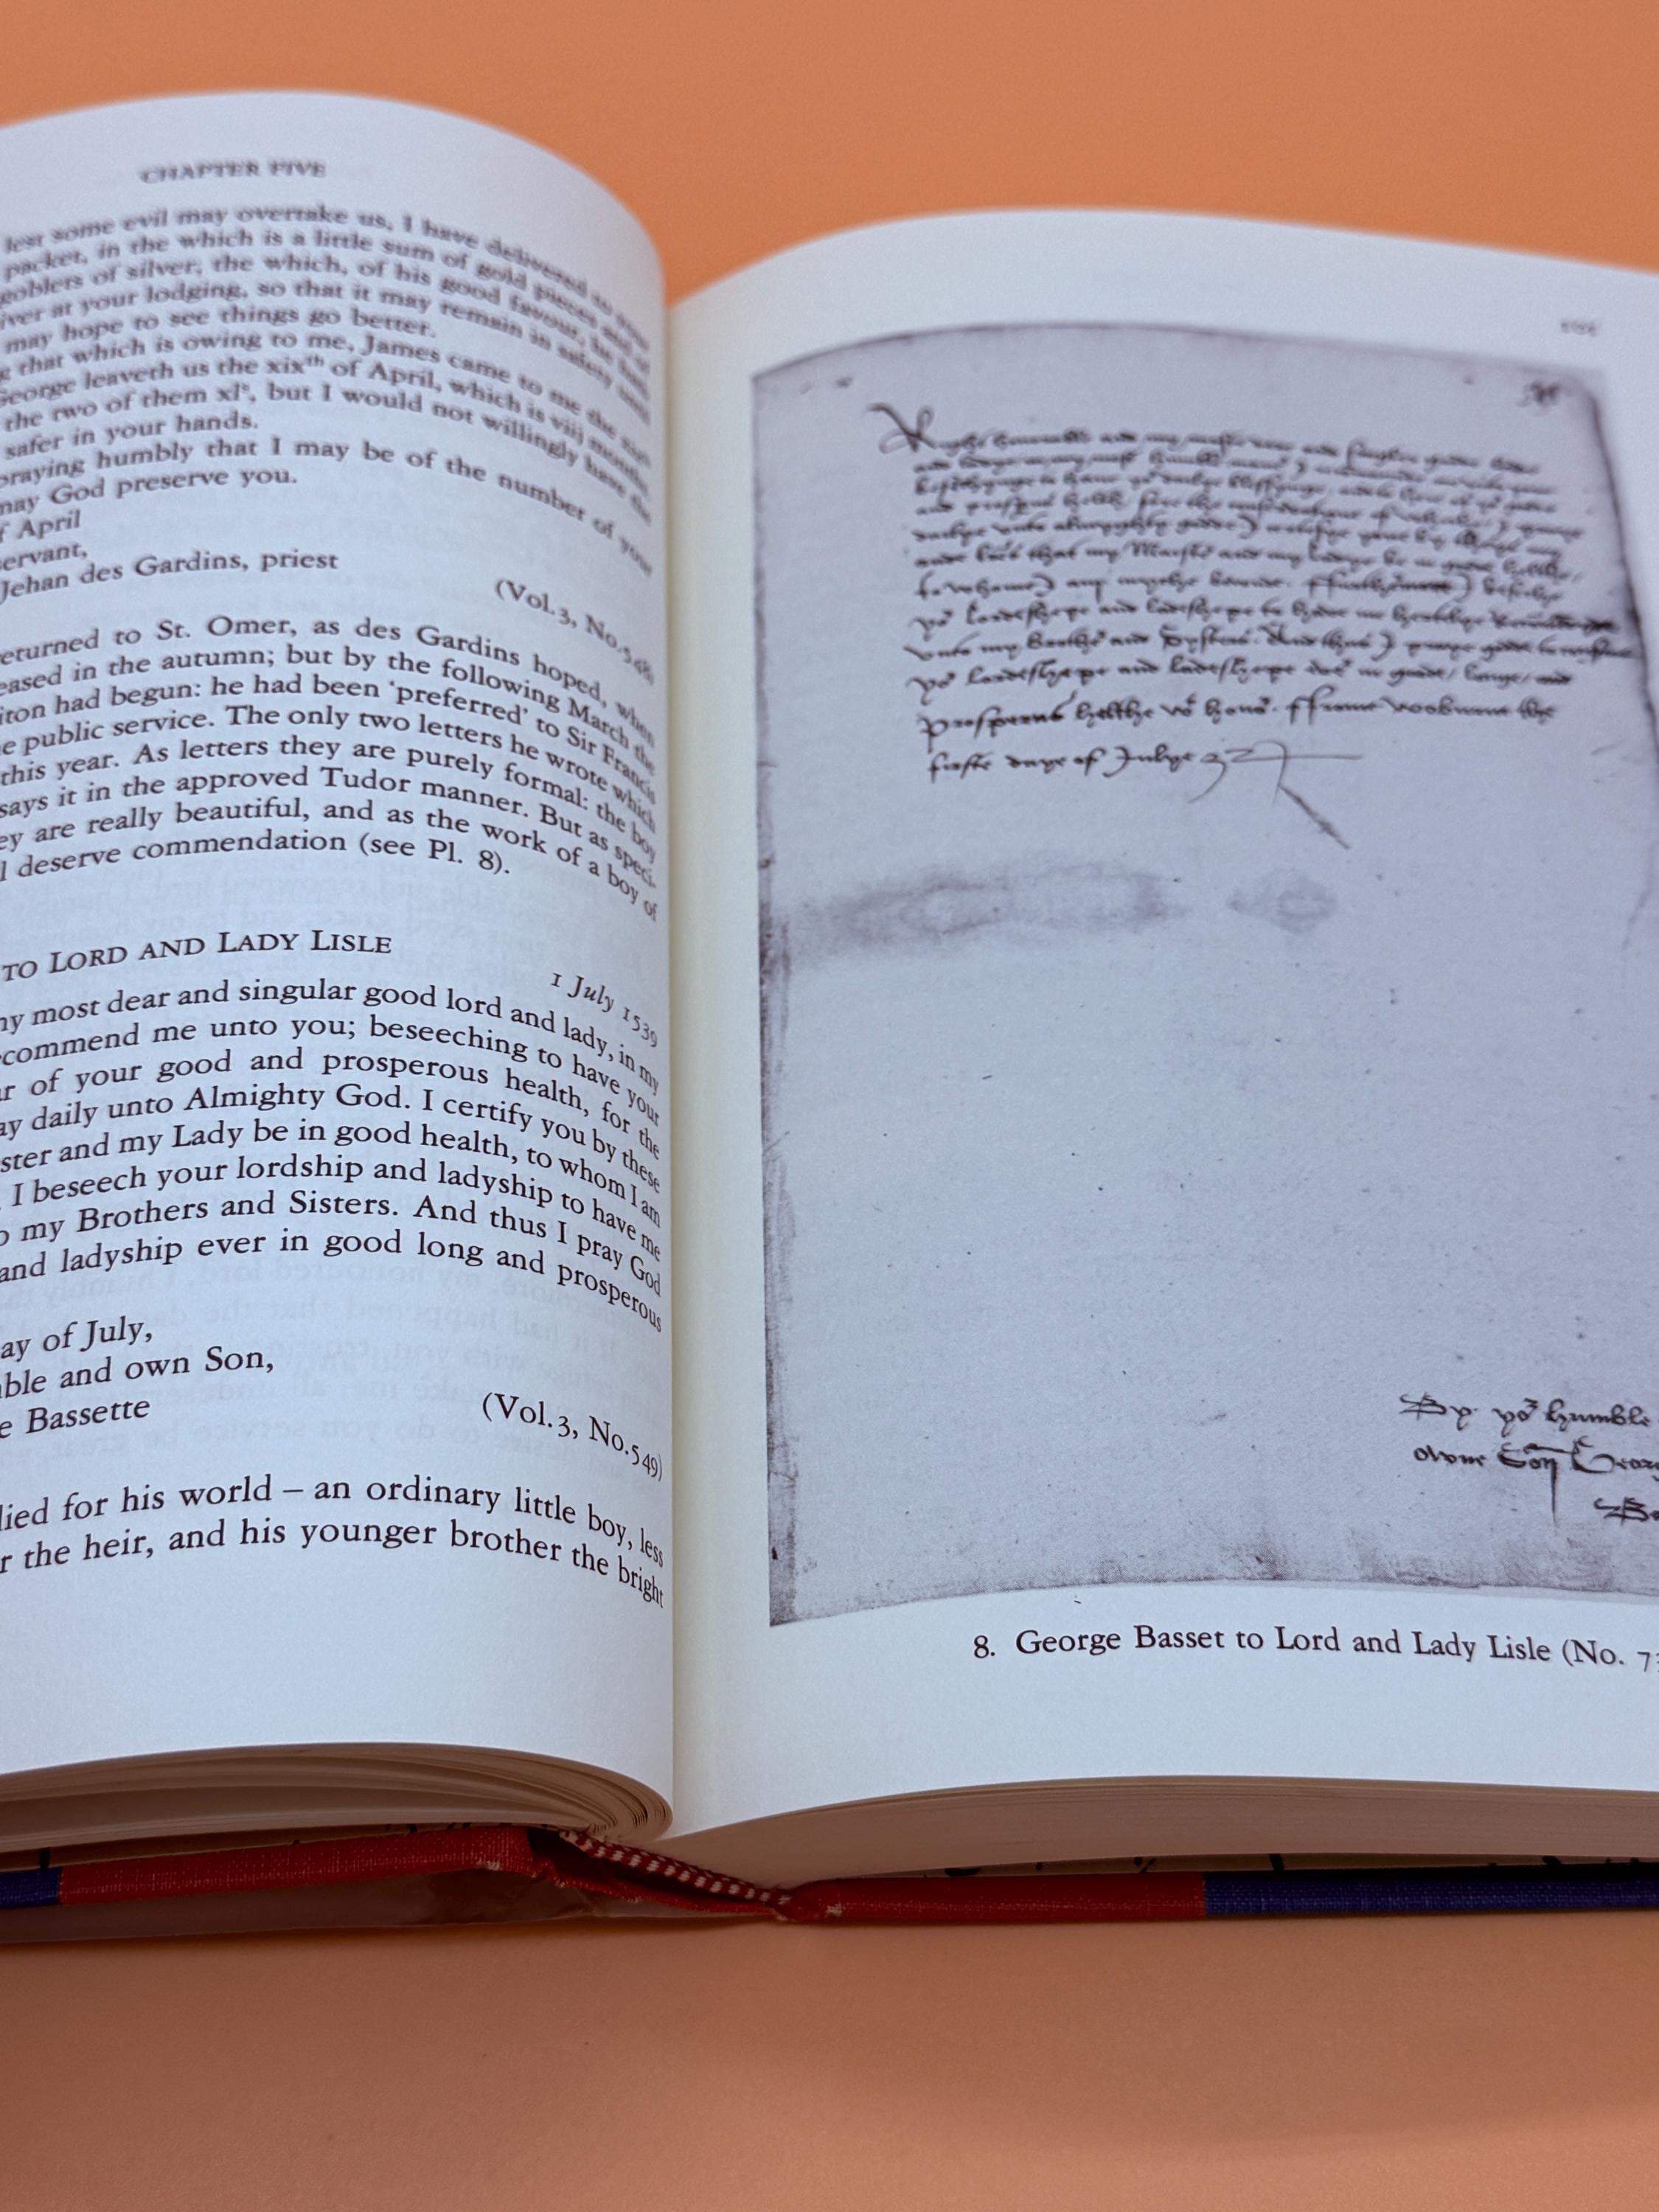 CHAPTER FIVE
lest some evil may overtake us, I have delivered to your
packet, in the which is a little sum of gold pieces and of
goblets of silver; the which, of his good favour, he hath
iver at your lodging, so that it may remain in safety until
may hope to see things go better.
g that which is owing to me, James came to me the
George leaveth us the xixth of April, which is viij months.
the two of them xls, but I would not willingly have the
safer in your hands.
praying humbly that I may be of the number of your
may God preserve you.
f April
ervant,
Jehan des Gardins, priest
(Vol. 3, No. 548)
eturned to St. Omer, as des Gardins hoped, when
eased in the autumn; but by the following March the
iton had begun: he had been ‘preferred’ to Sir Francis
e public service. The only two letters he wrote which
this year. As letters they are purely formal: the boy
says it in the approved Tudor manner. But as speci-
ey are really beautiful, and as the work of a boy of
l deserve commendation (see Pl. 8).
TO LORD AND LADY LISLE
1 July 1539
my most dear and singular good lord and lady, in my
commend me unto you; beseeching to have your
r of your good and prosperous health, for the
ay daily unto Almighty God. I certify you by these
ster and my Lady be in good health, to whom I am
. I beseech your lordship and ladyship to have me
o my Brothers and Sisters. And thus I pray God
and ladyship ever in good long and prosperous
ay of July,
ble and own Son,
e Bassette
(Vol. 3, No. 549)
lied for his world – an ordinary little boy, less
r the heir, and his younger brother the bright
and my
unto almyghty godde I
that my Maister and my ladye be in goode helthe,
to whome I am
yor lordeshepe and ladeshepe to have me
unto my brothers and Systers. And thus I praye godde
yor lordeshepe and ladeshepe ever in goode, longe, and
prosperus helthe wt honor. ffrome wobourne the
firste daye of Julye
By yor humble
owne Son Georg
Ba
8. George Basset to Lord and Lady Lisle (No. 73